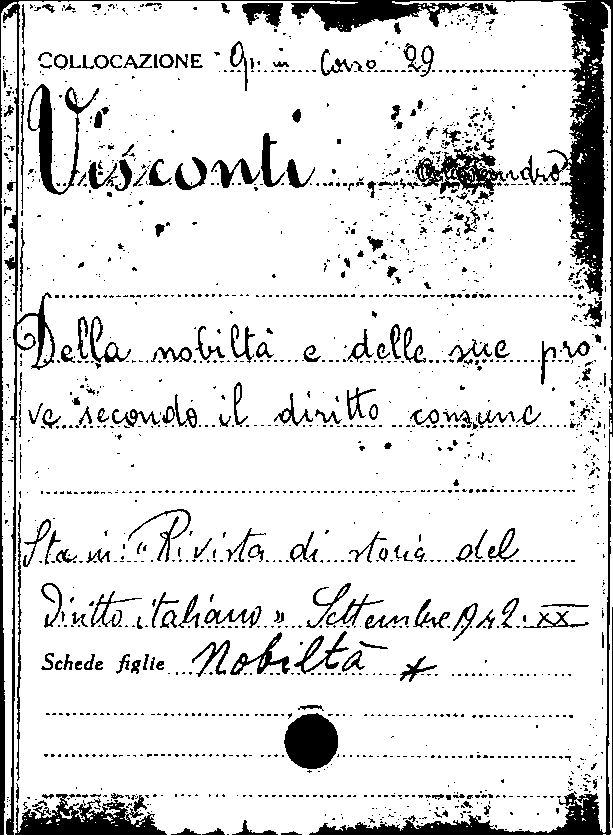 COLLOCAZIONE Op. in Corso 29
Visconti Alessandro
Della nobiltà e delle sue pro
ve secondo il diritto comune
Sta in: "Rivista di storia del
Diritto italiano" Settembre 1942. XX
Schede figlie Nobiltà *